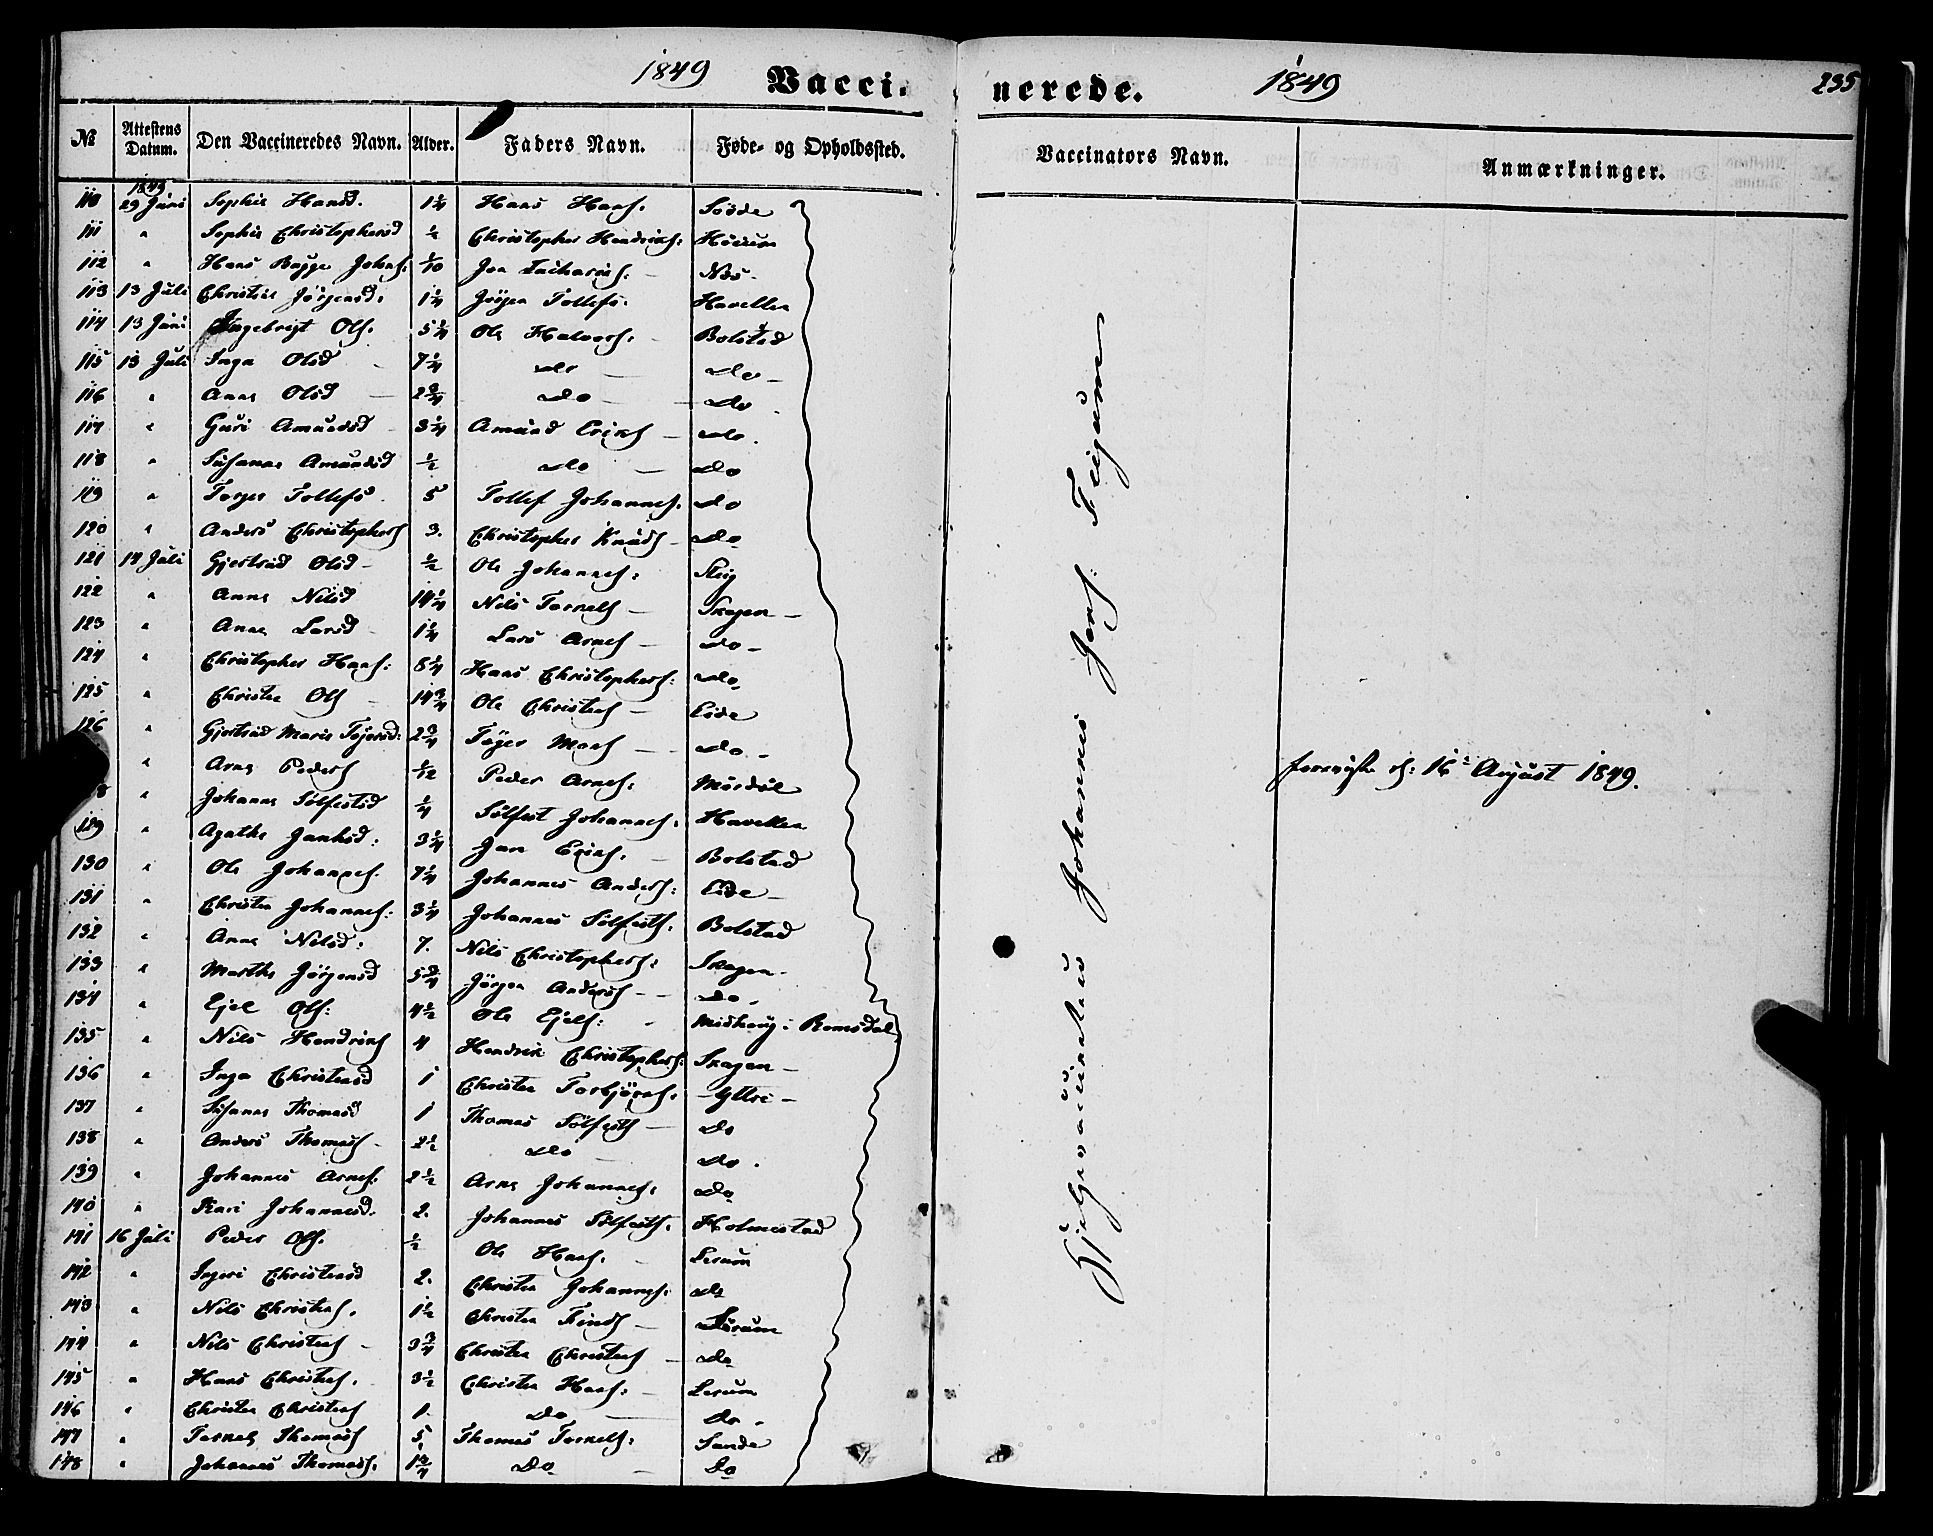 1849 Vacci- nerede. 1849 235
№ Attestens Datum. Den Vaccineredes Navn. Alder. Faders Navn. Føde- og Opholdssted. Vaccinators Navn. Anmærkninger.
1849
110 29 Juni Sophie Hansd. 1 1/4 Hans Hans. Sövde
111 " Sophie Christophersd 1/2 Christopher Hendriks:
112 " Hans Bugge Johns: 1/10 Jon Zacharias: Näs-
113 13 Juli Christine Jörgensd: 1 1/4 Jörgen Tollefs. Havellen
114 13 Juni Ingebrigt Ols. 5 1/4 Ole Halvors. Bolstad
115 13 Juli Inga Olsd 7 1/4 do do
116 " Anna Olsd 2 3/4 do do
117 " Guri Amundsd 3 1/4 Amund Eriks do.
118 " Susanne Amundsd 1/2 do do
119 " Torger Tollefs. 5 Tollef Johannes. do
120 " Anders Christophers 3. Christopher Knuds do
121 14 Juli Gjertrud Olsd 1/2 Ole Johannes:
122 " Anna Nilsd 14 1/4 Nils Tornels Skagen
123 " Anna Larsd 1 1/4 Lars Arnes do
124 " Christopher Hans: 8 1/4 Hans Christophers: do.
125 " Christen Ols 14 3/4 Ole Christens Eide
126 " Gjertrud Marie Töjersd: 2 3/4 Töger Mons do
" Arne Peders 1/12 Peder Arnes: Mördöl
8 " Johanne Sölfestsd 1/4 Sölfest Johannes. Havellen
129 " Agathe Jansd: 3 1/4 Jan Eriks. Bolstad
130 " Ole Johannes. 7 1/4 Johannes Anders: Eide
131 " Christen Johannes: 3 1/4 Johannes Sölfests. Bolstad
132 " Anna Nilsd: 7. Nils Christophers: Skagen
133 " Marthe Jörgensd 5 3/4 Jörgen Anders do.
134 " Ejel Ols: 4 1/2 Ole Ejels: i Romsdal
135 " Nils Hendriks 4 Hendrik Christophers: Skagen
136 " Inga Christensd 1 Christen Torbjörns. Yttri
137 " Susanne Thomasd 1 Thomas Sölfests do
138 " Anders Thomas 2 1/2 do do.
139 " Johannes Arnes: 2 1/2 Arne Johannes: do
140 " Kari Johannesd. 2. Johannes Sölfests. Holmestad
141 16 Juli Peder Ols. 1/2 Ole Hans. Lerum
142 " Ingeri Christensd 2. Christen Johannes: do
143 " Nils Christens. 1 1/2 Christen Finds
144 " Nils Christens 3 3/4 Christen Christens do
145 " Hans Christens. 3 1/2 Christen Hans: Lerum
146 " Christen Christens 1. do do.
147 " Tornels Thomas 5 Thomas Tornels: Sande
148 " Johannes Thomas: 1 3/4 Do Do
Hjelpevaccinateur Johannes Jens: Feigum
16de August 1849.